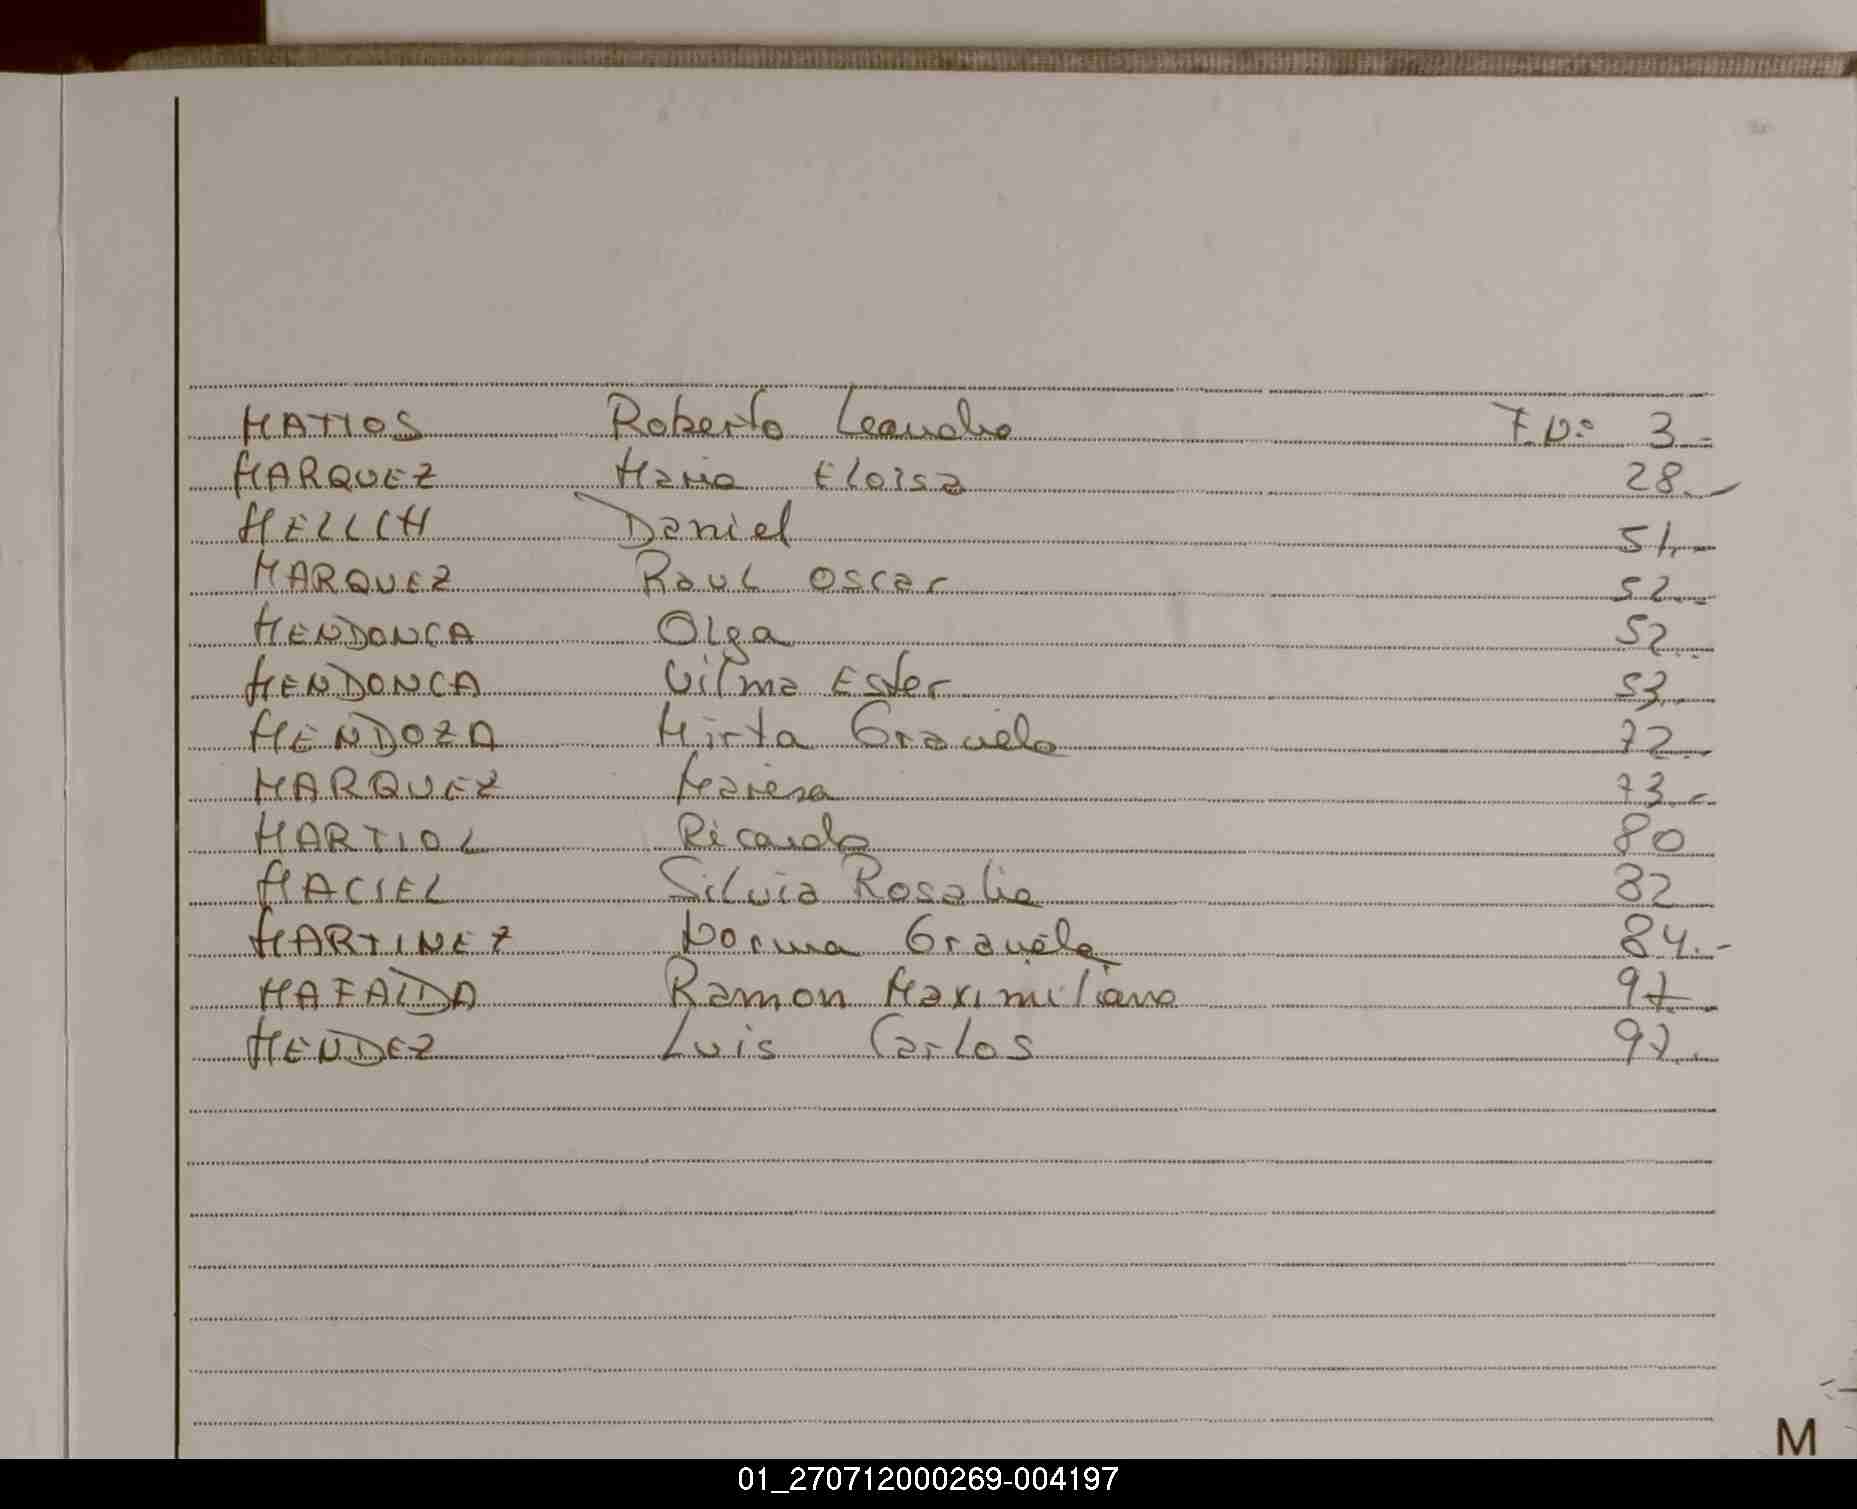 MATTOS Roberto Leandro Fº: 3.-
MARQUEZ Maria Eloisa 28.-
MELLCH Daniel 51.-
MARQUEZ Raul Oscar 52.-
MENDONCA Olga 52..
MENDONCA Vilma Ester 53.-
MENDOZA Mirta Graciela 72.-
MARQUEZ Maresa 73.-
MARTIOL Ricardo 80
MACIEL Silvia Rosalia 82
MARTINEZ Norma Graciela 84.-
MAFALDA Ramon Maximiliano 97
MENDEZ Luis Carlos 97.
M
01_270712000269-004197